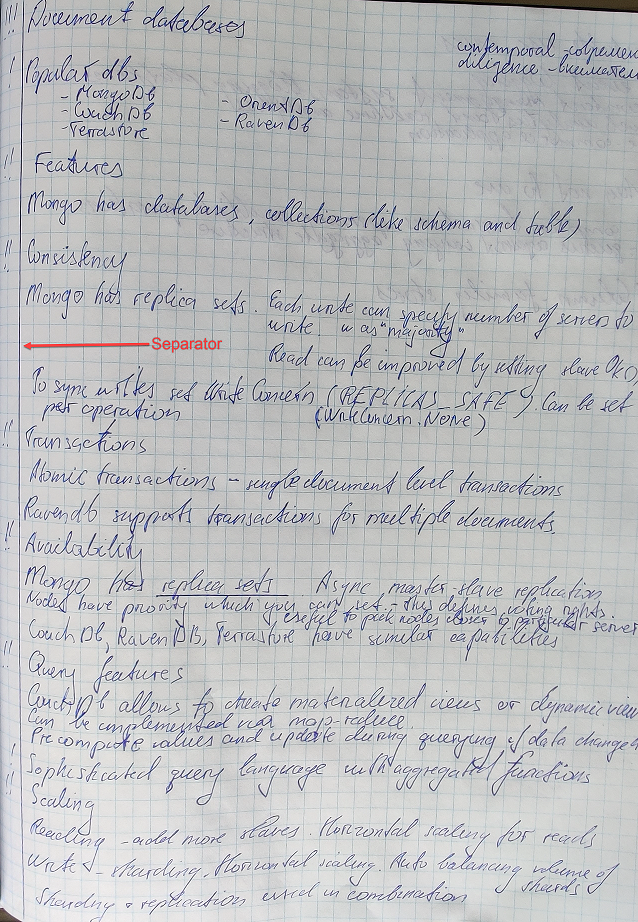 !!! Document databases
contemporal - современ
diligence - внимател
! Popular dbs
- MongoDb
- OrientDb
- CouchDb
- RavenDb
- Terrastore
!! Features
Mongo has databases, collections (like schema and table)
!! Consistency
Mongo has replica sets. Each write can specify number of servers to
write, w as "majority"
Separator
Read can be improved by setting slave Ok()
To sync writes set Write Concern (REPLICAS_SAFE). Can be set
per operation (WriteConcern.None)
!! Transactions
Atomic transactions - single document level transactions
Ravendb supports transactions for multiple documents.
!! Availability
Mongo has replica sets Async master-slave replication
Nodes have priority which you can set - this defines voting rights.
Useful to pick nodes closer to particular server
CouchDb, RavenDB, Terrastore have similar capabilities
!! Query features
CouchDb allows to create materialized views or dynamic view
Can be implemented via map-reduce.
Precompute values and update during querying if data changed
! Sophisticated query language with aggregated functions
!! Scaling
Reading - add more slaves. Horizontal scaling for reads
Write - sharding. Horizontal scaling. Auto balancing volume of
shards
Sharding + replication used in combination